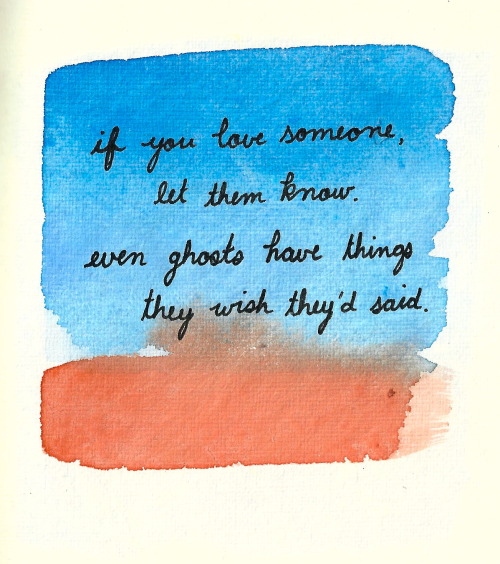 if you love someone,
let them know.
even ghosts have things
they wish they'd said.